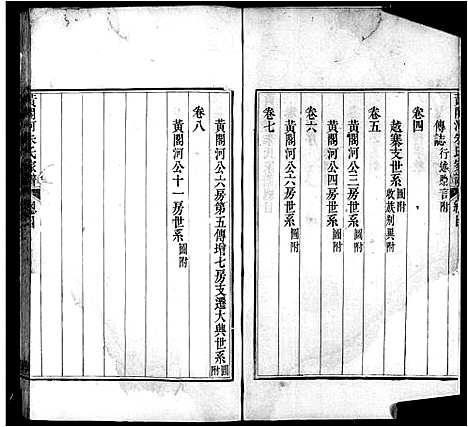 傳誌行述贈言附
卷四
越寨支世系圖附 收族別異附
卷五
黃閣河公三房世系圖附
黃閣河公四房世系圖附
卷六
黃閣河公六房世系圖附
卷七
黃閣河公六房第五傳增七房支遷大興世系圖附
卷八
黃閣河公十一房世系圖附
黃閣河朱氏家譜 總目